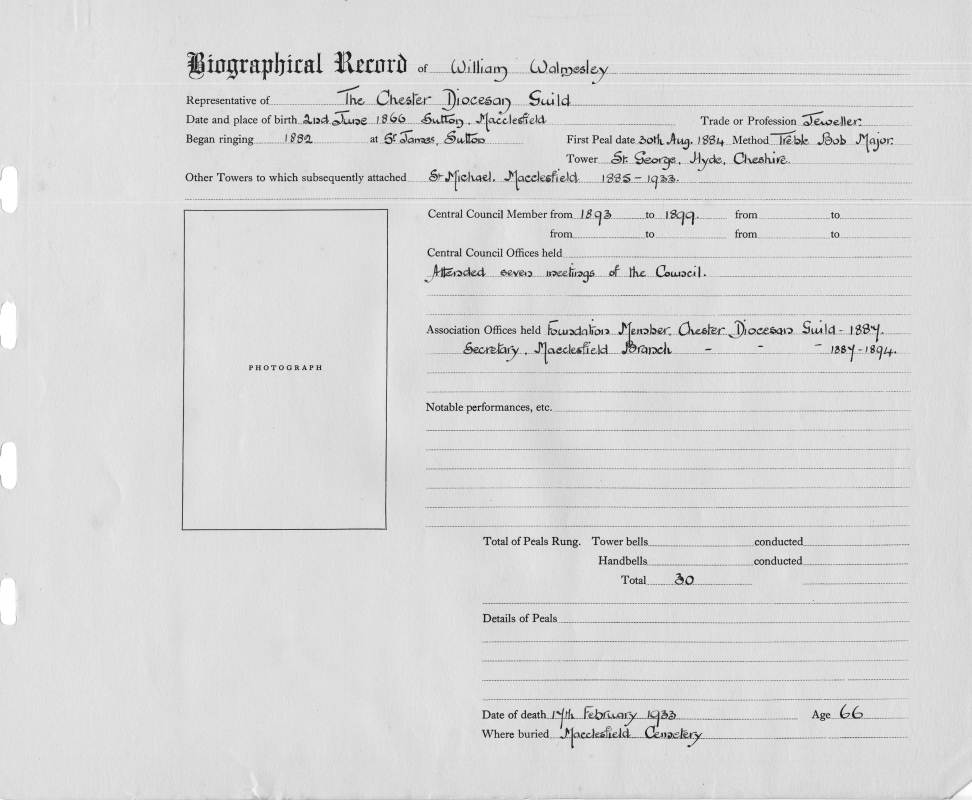 Biographical Record of William Walmesley
Representative of The Chester Diocesan Guild
Date and place of birth 22nd June 1866 Sutton, Macclesfield Trade or Profession Jeweller.
Began ringing 1882 at St James, Sutton First Peal date 30th Aug. 1884 Method Treble Bob Major.
Tower St. George, Hyde, Cheshire.
Other Towers to which subsequently attached St Michael. Macclesfield 1885 - 1933.
Central Council Member from 1893 to 1899. from to
from to from to
Central Council Offices held
Attended seven meetings of the Council.
Association Offices held Foundation Member. Chester Diocesan Guild - 1887.
Secretary. Macclesfield Branch - - - 1887-1894.
PHOTOGRAPH
Notable performances, etc.
Total of Peals Rung. Tower bells conducted
Handbells conducted
Total 30
Details of Peals
Date of death 17th February 1933 Age 66
Where buried Macclesfield Cemetery